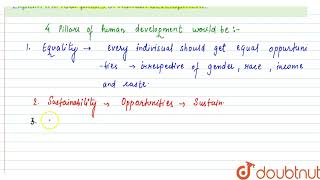 4 Pillars of human development would be :-
1. Equality → every indivisual should get equal opportuni
-ties → irrespective of gender, race, income
and caste.
2. Sustainability → Opportunities → Sustain
3.
doubtnut